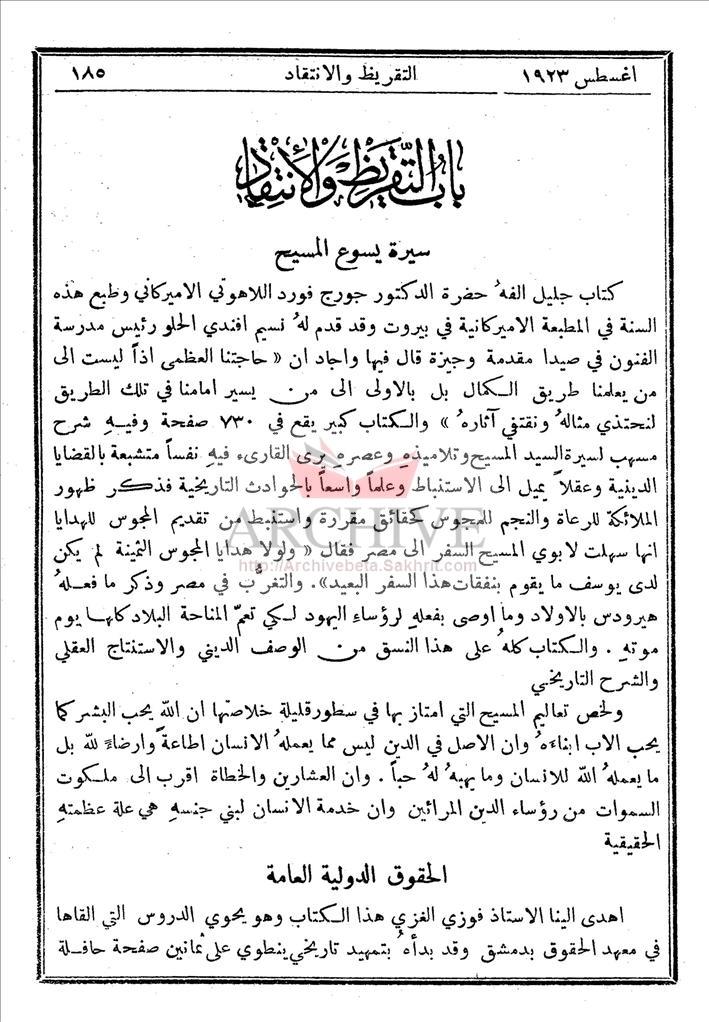 اغسطس ١٩٢٣ التقريظ والانتقاد ١٨٥
باب التقريظ والانتقاد
سيرة يسوع المسيح
كتاب جليل الفهُ حضرة الدكتور جورج فورد اللاهوتي الاميركاني وطبع هذه
السنة في المطبعة الاميركانية في بيروت وقد قدم لهُ نسيم افندي الحلو رئيس مدرسة
الفنون في صيدا مقدمة وجيزة قال فيها واجاد ان « حاجتنا العظمى اذاً ليست الى
من يعلمنا طريق الكمال بل بالاولى الى من يسير امامنا في تلك الطريق
لنحتذي مثالهُ ونقتفي آثارهُ » والكتاب كبير يقع في ٧٣٠ صفحة وفيهِ شرح
مسهب لسيرة السيد المسيح وتلاميذهِ وعصرهِ يرى القارىء فيهِ نفساً متشبعة بالقضايا
الدينية وعقلاً يميل الى الاستنباط وعلماً واسعاً بالحوادث التاريخية فذكر ظهور
الملائكة للرعاة والنجم للمجوس كحقائق مقررة واستنبط من تقديم المجوس للهدايا
ARCHIVE
انها سهلت لابوي المسيح السفر الى مصر فقال « ولولا هدايا المجوس الثمينة لم يكن
http://Archivebeta.Sakhrit.com
لدى يوسف ما يقوم بنفقات هذا السفر البعيد». والتغرُّب في مصر وذكر ما فعلهُ
هيرودس بالاولاد وما اوصى بفعلهِ لرؤساء اليهود لكي تعمّ المناحة البلاد كلها يوم
موتهِ . والكتاب كلهُ على هذا النسق من الوصف الديني والاستنتاج العقلي
والشرح التاريخي
ولخص تعاليم المسيح التي امتاز بها في سطور قليلة خلاصتها ان الله يحب البشر كما
يحب الاب ابناءهُ وان الاصل في الدين ليس مما يعملهُ الانسان اطاعةً وارضاءً لله بل
ما يعملهُ الله للانسان وما يهبهُ لهُ حباً . وان العشارين والخطاة اقرب الى ملكوت
السموات من رؤساء الدين المرائين وان خدمة الانسان لبني جنسهِ هي علة عظمتهِ
الحقيقية
الحقوق الدولية العامة
اهدى الينا الاستاذ فوزي الغزي هذا الكتاب وهو يحوي الدروس التي القاها
في معهد الحقوق بدمشق وقد بدأهُ بتمهيد تاريخي ينطوي على ثمانين صفحة حافلة